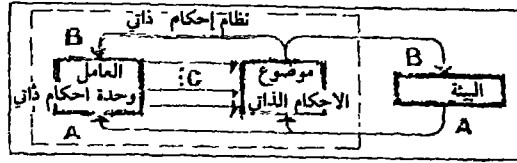 نظام إحكام ذاتي
B
العامل
وحدة احكام ذاتي
A
C
موضوع
الاحكام الذاتي
B
البيئة
A